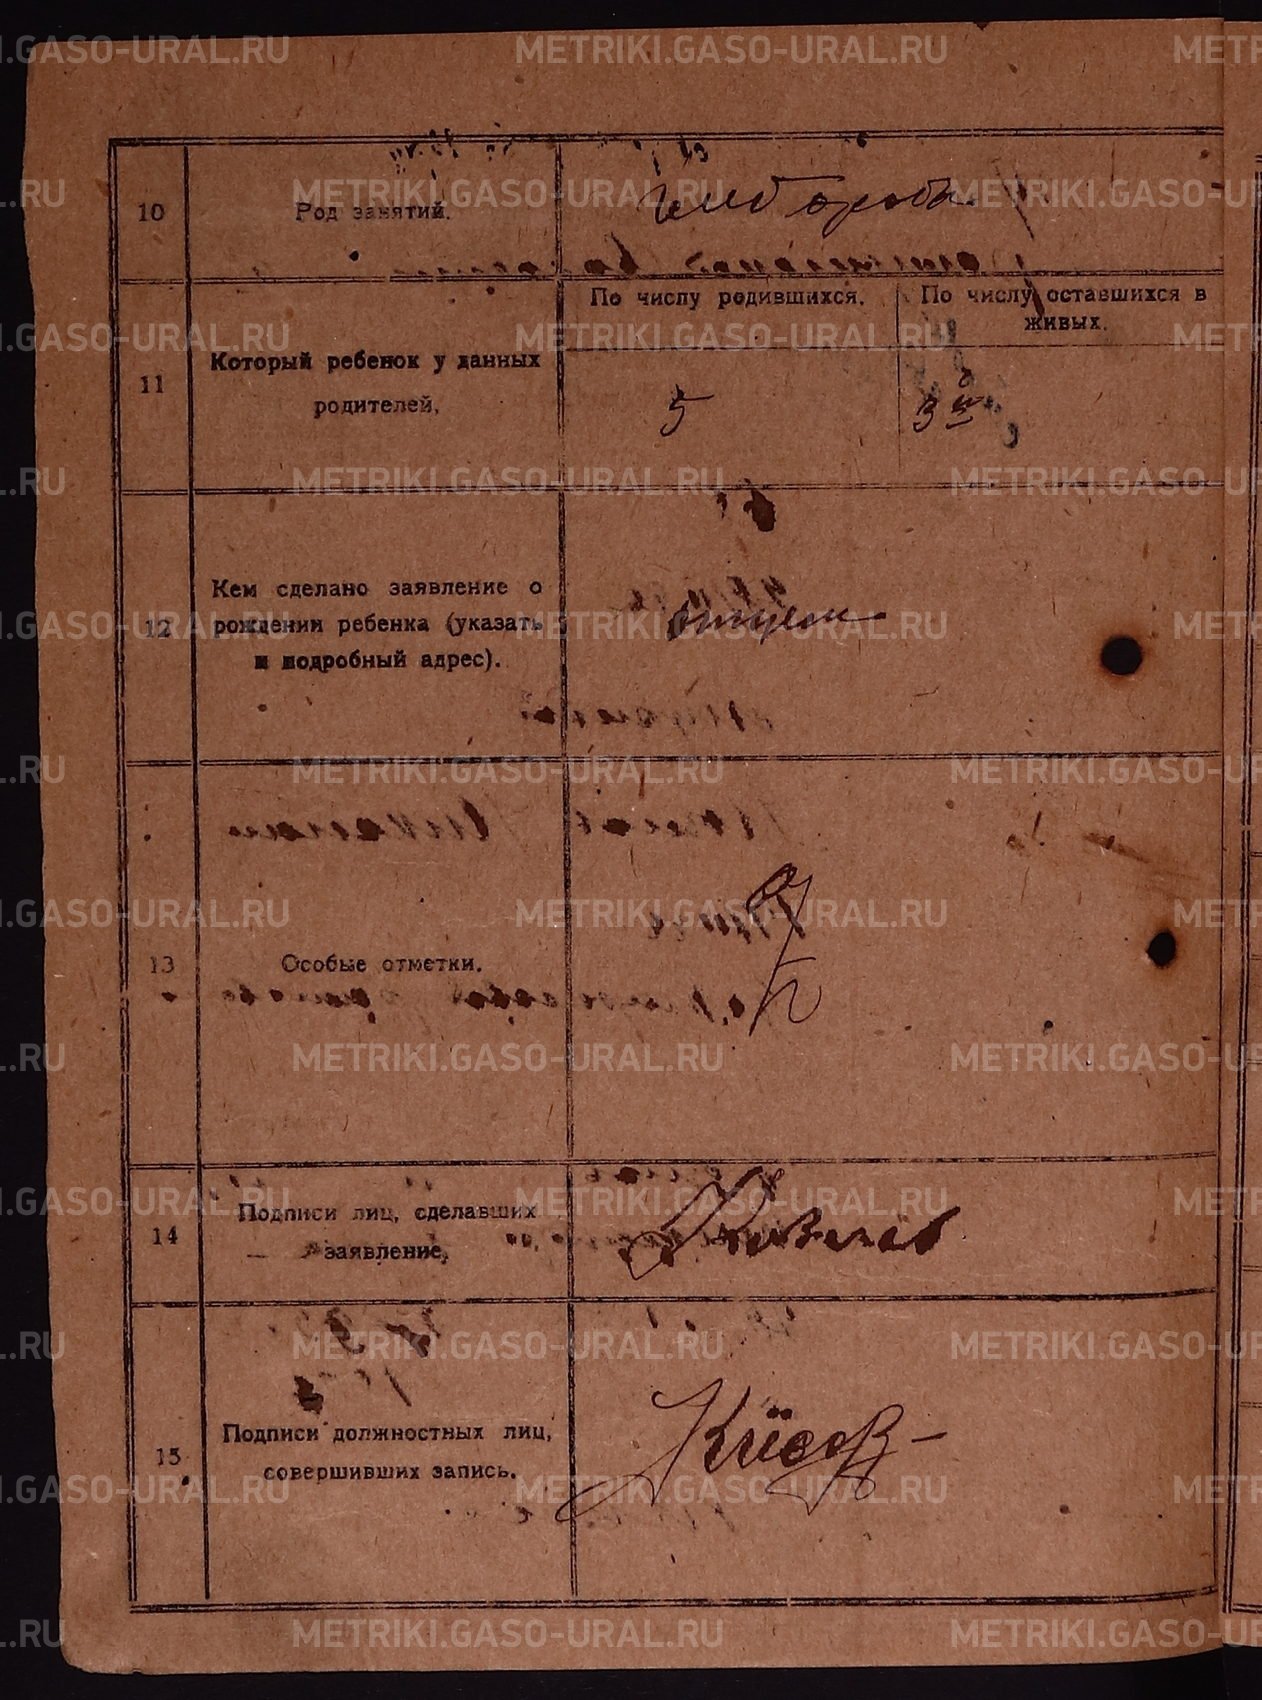 10
Род занятий.
11
Который ребенок у данных
родителей,
По числу родившихся.
По числу оставшихся в
живых.
5
3й
12
Кем сделано заявление о
рождении ребенка (указать
и подробный адрес).
отцем
13
Особые отметки.
14
Подписи лиц, сделавших
заявление,
15
Подписи должностных лиц,
совершивших запись.
METRIKI.GASO-URAL.RU